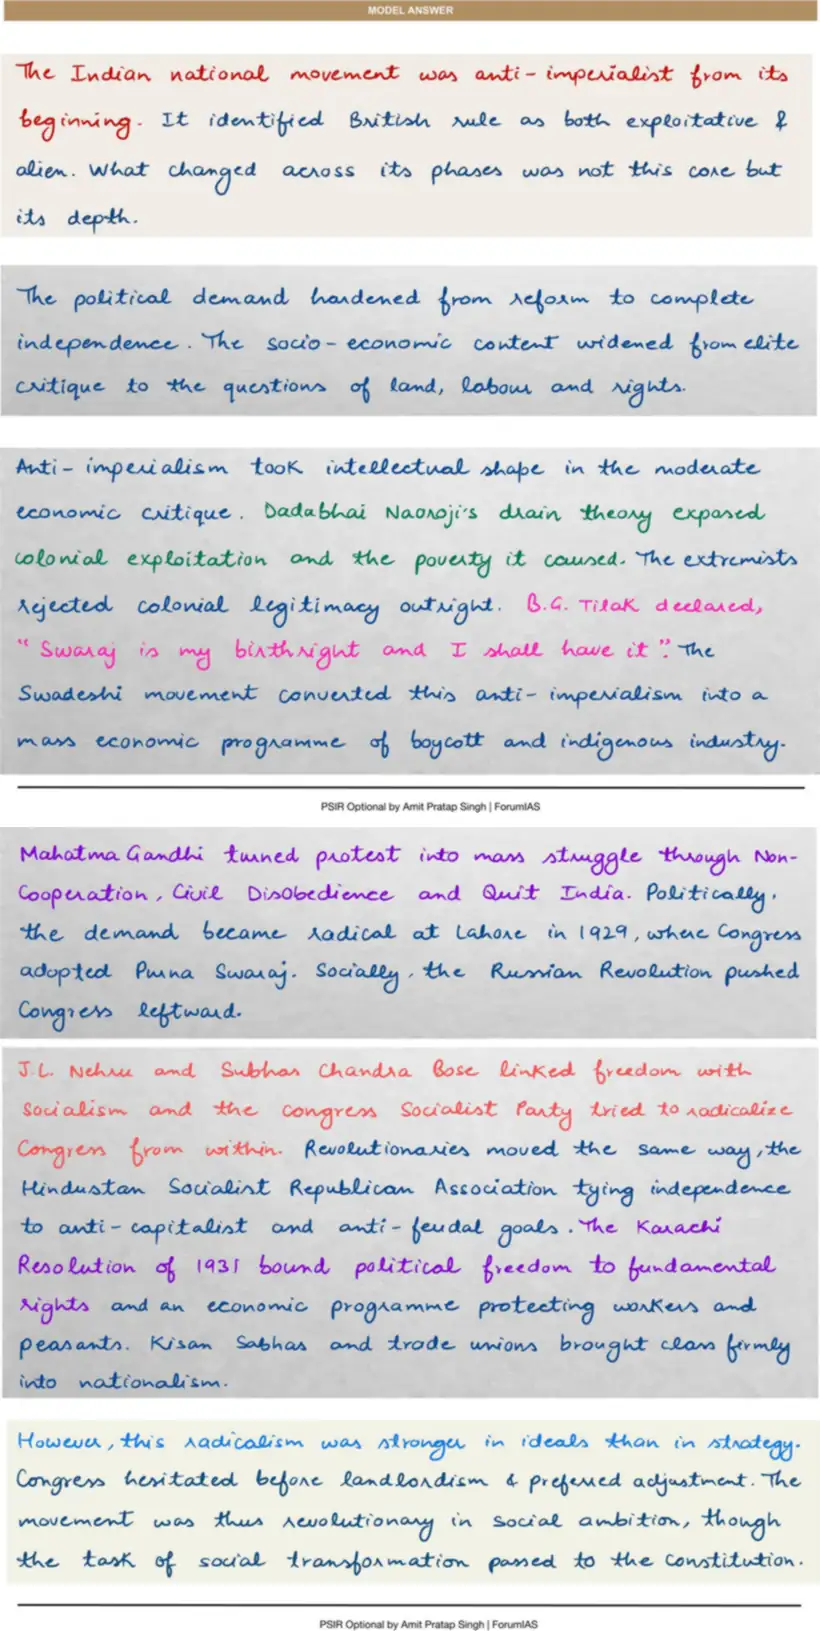 MODEL ANSWER
The Indian national movement was anti-imperialist from its
beginning. It identified British rule as both exploitative &
alien. What changed across its phases was not this core but
its depth.
The political demand hardened from reform to complete
independence. The socio-economic content widened from elite
critique to the questions of land, labour and rights.
Anti-imperialism took intellectual shape in the moderate
economic critique. Dadabhai Naoroji's drain theory exposed
colonial exploitation and the poverty it caused. The extremists
rejected colonial legitimacy outright. B.G. Tilak declared,
"Swaraj is my birthright and I shall have it". The
Swadeshi movement converted this anti-imperialism into a
mass economic programme of boycott and indigenous industry.
PSIR Optional by Amit Pratap Singh | ForumIAS
Mahatma Gandhi turned protest into mass struggle through Non-
Cooperation, Civil Disobedience and Quit India. Politically,
the demand became radical at Lahore in 1929, where Congress
adopted Purna Swaraj. Socially, the Russian Revolution pushed
Congress leftward.
J.L. Nehru and Subhas Chandra Bose linked freedom with
Socialism and the Congress Socialist Party tried to radicalize
Congress from within. Revolutionaries moved the same way, the
Hindustan Socialist Republican Association tying independence
to anti-capitalist and anti-feudal goals. The Karachi
Resolution of 1931 bound political freedom to fundamental
rights and an economic programme protecting workers and
peasants. Kisan Sabhas and trade unions brought class firmly
into nationalism.
However, this radicalism was stronger in ideals than in strategy.
Congress hesitated before landlordism & preferred adjustment. The
movement was thus revolutionary in social ambition, though
the task of social transformation passed to the Constitution.
PSIR Optional by Amit Pratap Singh | ForumIAS